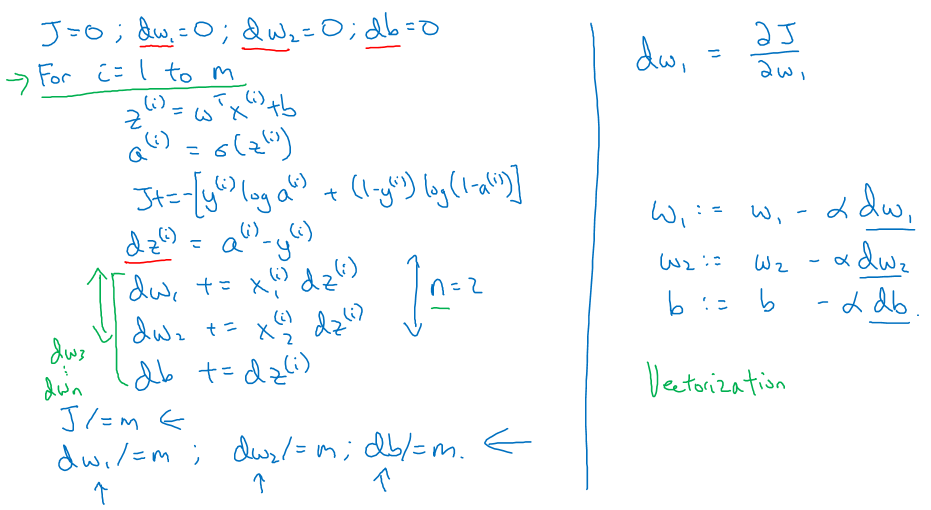 J=0 ; dw₁=0 ; dw₂=0 ; db=0
→ For i=1 to m
z⁽ⁱ⁾ = wᵀx⁽ⁱ⁾+b
a⁽ⁱ⁾ = σ(z⁽ⁱ⁾)
J+=-[y⁽ⁱ⁾ log a⁽ⁱ⁾ + (1-y⁽ⁱ⁾) log(1-a⁽ⁱ⁾)]
dz⁽ⁱ⁾ = a⁽ⁱ⁾-y⁽ⁱ⁾
dw₁ += x₁⁽ⁱ⁾ dz⁽ⁱ⁾
dw₂ += x₂⁽ⁱ⁾ dz⁽ⁱ⁾
n=2
db += dz⁽ⁱ⁾
dw₃
⋮
dwₙ
J /= m ←
dw₁ /= m ; dw₂ /= m ; db /= m. ←
↑ ↑ ↑
dw₁ = ∂J/∂w₁
w₁ := w₁ - α dw₁
w₂ := w₂ - α dw₂
b := b - α db.
Vectorization